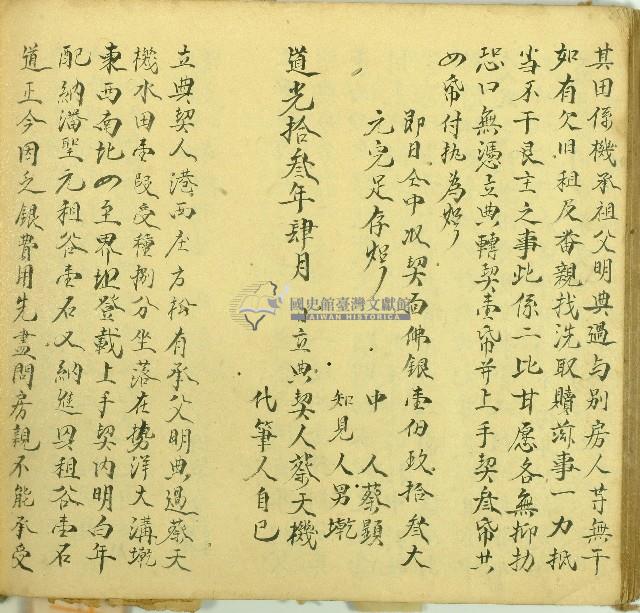 其田係機承祖父明典過与別房人等無干
如有欠旧租及番親找洗取贖茲事一力抵
当不干艮主之事此係二比甘愿各無抑扐
恐口無憑立典轉契壹帋并上手契叁帋共
四帋付执為炤
即日仝中收契面佛銀壹佰玖拾叁大
元完足存炤
中人蔡顕
知見人男墘
道光拾叁年肆月 日立典契人蔡天機
代筆人自已
立典契人港西庄方松有承父明典過蔡天
機水田壹段受種捌分坐落在势洋大溝墘
東西南北四至界址登載上手契内明白年
配納潘聖元租谷壹石又納進典租谷壹石
道正今因乏銀費用先盡問房親不能承受
國史館臺灣文獻館
TAIWAN HISTORICA